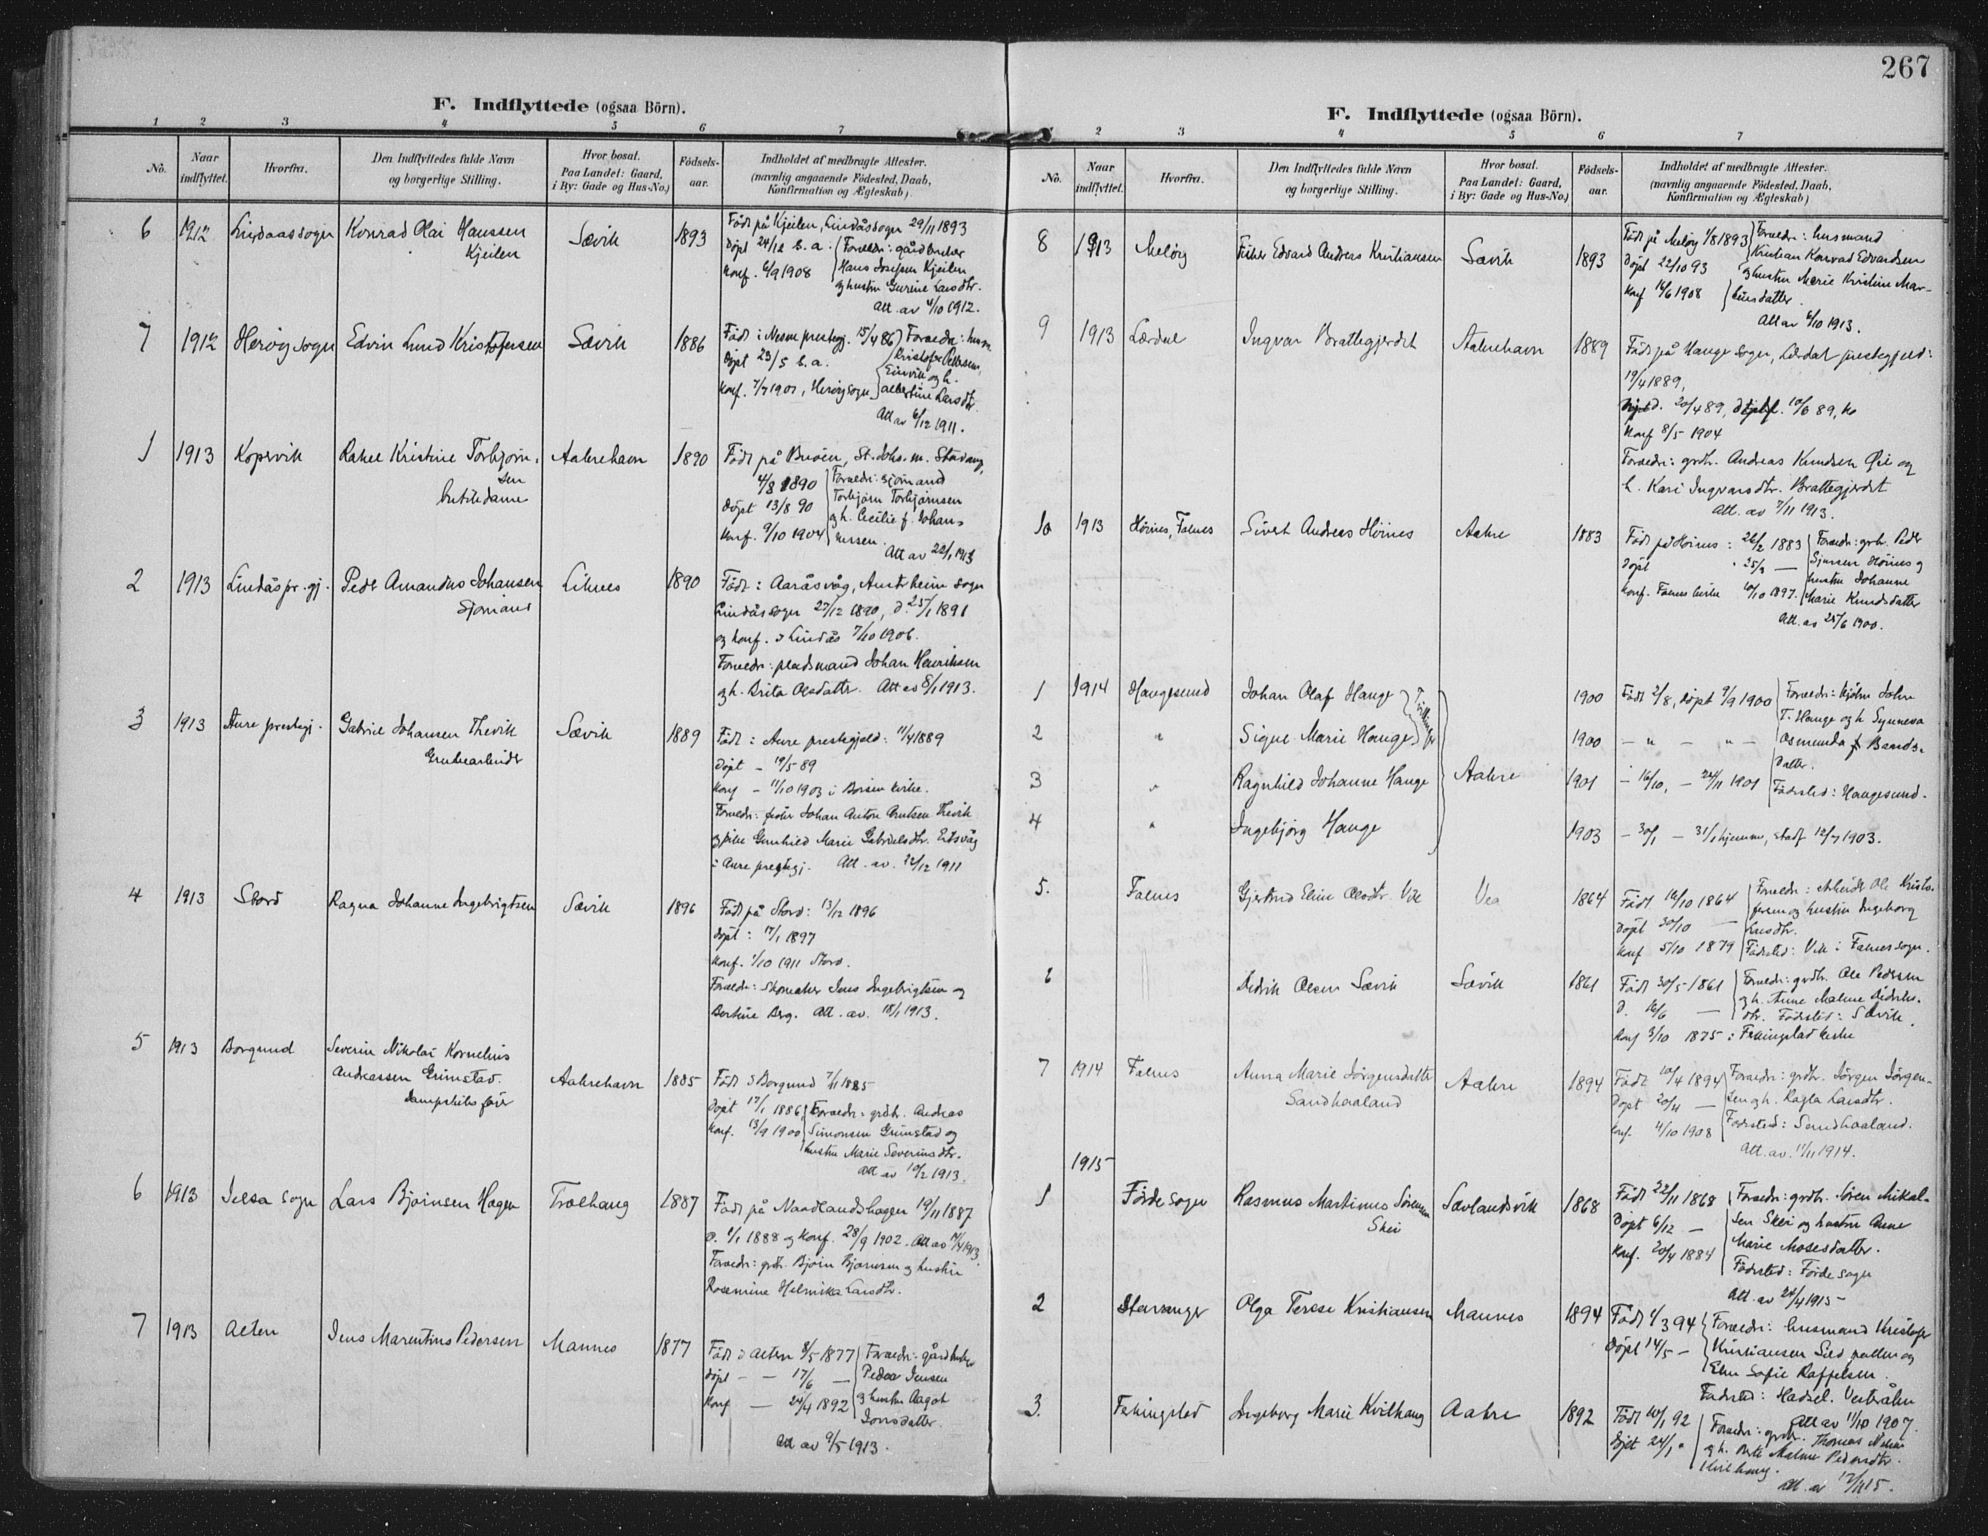 267
F. Indflyttede (ogsaa Börn).
1 2 3 4 5 6 7
No. Naar indflyttet. Hvorfra. Den Indflyttedes fulde Navn og borgerlige Stilling. Hvor bosat. Paa Landet: Gaard, i By: Gade og Hus-No.) Fødsels-aar. Indholdet af medbragte Attester. (navnlig angaaende Födested, Daab, Konfirmation og Ægteskab)
6 1912 Lindaassogn Konrad Olai Hanssen Sævik 1893 Född på Kjeilen, Lindåssogn 29/11 1893
Kjeilen
Döpt 24/12 s. a. Foræedr: gårdbruker
Konf. 6/9 1908 Hans Josefsen Kjeilen
og hustru Gurine Larsdtr.
Att. av 4/10 1912.
7 1912 Herøy sogn Edvin Lund Kristofersen Sævik 1886 Född i Nesne prestegj. 15/4 86 Foræedr: husm.
Döpt 23/5 s. a. Kristofer Pedersen,
og h.
Konf. 7/7 1901, Herøy sogn Albertine Larsdtr.
Att av 6/12 1911.
1 1913 Kopervik Rakel Kristine Torbjørn- Aakrehavn 1890 Född på Buøen, St. Johs. m. Stavang,
sen
Butikdame
4/8 1890 Foræedr: sjømand
Torbjørn Torbjørnsen
Döpt 13/8 90 og h. Cecilie f. Johan-
Konf. 9/10 1904 nessen.
Att av 22/1 1913
2 1913 Lindås pr.gj. Peder Amandus Johansen Liknes 1890 Född i Aaråsvåg, Austrheim sogn
Sjømand
Lindås sogn 27/12 1890, d. 25/1 1891
og konf. i Lindås 7/10 1906.
Foræedr: pladsmand Johan Henriksen
og h. Brita Olsdatter. Att av 8/1 1913.
3 1913 Aure prestegj. Gabriel Johansen Thevik Sævik 1889 Född i Aure prestegjeld: 11/4 1889
Grubearbeider
Döpt - 19/5 89
Konf - 11/10 1903 i Borsen kirke.
Foræedr: Johan Anton Arntsen Thevik
og pike Gunhild Marie Gabrielsdtr.
i Aure prestegj. Att. av. 22/12 1911
4 1913 Stord Ragna Johanne Ingebrigtsen Sævik 1896 Född på Stord: 13/12 1896
Döpt: 17/1 1897
Konf. 1/10 1911 Stord.
Foræedr: Skomaker Jens Ingebrigtsen og
Bertine Berg. Att. av. 18/1 1913.
5 1913 Borgund Severin Nikolai Kornelius
Andreassen Grimstad. Aakrehavn 1885 Född i Borgund 7/11 1885
Döpt 17/1 1886 Foræedr: grdbr. Andreas
Konf. 13/9 1900 Simonsen Grimstad og
hustru Marie Severinsdtr.
Att av 10/2 1913.
6 1913 Jelsa sogn Lars Bjørnsen Hagen Trælhaug 1887 Född på Naadlandshagen 19/11 1887
d. 1/1 1888 og konf. 28/9 1902. Att av 17/4 1913.
Foræedr: grdbr. Bjørn Bjørnsen og hustru
Rosemine Helmika Larsdtr.
7 1913 Acten Jens Marentius Pedersen Mannes 1877 Född i Acten 8/5 1877 Foræedr: gårdbruker
Döpt - - 17/6 - Peder Jensen
Konf - 24/4 1892 og hustru Aagot
Jonsdatter.
Att av 9/5 1913.
F. Indflyttede (ogsaa Börn).
2 3 4 5 6 7
No. Naar indflyttet. Hvorfra. Den Indflyttedes fulde Navn og borgerlige Stilling. Hvor bosat. Paa Landet: Gaard, i By: Gade og Hus-No.) Fødsels-aar. Indholdet af medbragte Attester. (navnlig angaaende Födested, Daab, Konfirmation og Ægteskab)
8 1913 Meløy Fisker Edvard Andreas Kristiansen Sævik 1893 Född på Meløy 1/8 1893 Foræedr: husmand
Kristian Konrad Edvardsen
Döpt 22/10 93 og hustru Marie Kristine Mar-
Konf 14/6 1908
Att av 6/10 1913.
9 1913 Lærdal Ingvar Brattegjerdet Aakrehavn 1889 Född på Hauge sogn, Lærdal prestegjeld:
19/4 1889,
Konf 8/5 1904
Foræedr: grdbr. Andreas Knudsen Øie og
h. Kari Ingvarsdtr. Brattegjerdet
Att. av 7/11 1913.
10 1913 Høines, Falnes Sivert Andreas Høines Aakre 1883 Född på Høines: 26/2 1883 Foræedr: grb. Peder
Döpt 25/3 - Høines og
hustru Johanne
Konf. Falnes kirke 10/10 1897. Marie Knudsdatter
Att. av 25/6 1900.
1 1914 Haugesund Johan Olaf Hauge 1900 Född 2/8, döpt 9/9 1900 Foræedr: John
T. Hauge og h. Synneva
2 " Signe Marie Hauge 1900 - " - " - Osmunda f. Baards-
datter.
3 " Ragnhild Johanne Hauge Aakre 1901 - 16/10, - 24/11 1901 Födested: Haugesund.
4 " Ingebjørg Hauge 1903 - 30/1 - 31/1 hjemme, stadf 12/7 1903.
5. Falnes Gjertrud Eline Olsdtr. Vik Vea 1864 Född 16/10 1864 Foræedr: Arbeider Ole Kristo-
fersen og hustru Ingeborg
Döpt 30/10 -
Konf 5/10 1879 Födested: Vik i Falnes sogn.
6 Didrik Olsen Sævik Sævik 1861 Född 30/5 1861 Foræedr: grdbr. Ole Pedersen
og h. Anne Malene Didriks-
D. 16/6 - dtr. Födested: Sævik.
Konf 3/10 1875 i Falnes kirke
7 1914 Falnes Anna Marie Jørgensdatter Aakre 1894 Född 10/4 1894 Foræedr: grdbr. Jørgen Jørgen-
Sandhaaland
Döpt 20/4 - sen og h. Ragla Larsdtr.
Konf. 4/10 1908 Födested: Sandhaaland.
Att. av. 11/11 1914.
1915
1 Førde sogn Rasmus Martinus Sørensen Sævlandsvik 1868 Född 22/11 1868 Foræedr: grdbr. Søren Mikal-
Skei
Döpt 6/12 - sen Skei og hustru Anne
Konf. 20/4 1884 Marie Mosesdatter.
Födested: Førde sogn
Att. av 24/4 1915
2 Stavanger Olga Terese Kristiansen Mannes 1894 Född 4/3 94 Foræedr: husmand Kristofer
Döpt 14/5 - Kristiansen og
Elen Sofie Raffelsen.
Födested: Hadsel. Vesterålen
Att av 11/10 1907.
3. Falnes Ingeborg Marie Kvilhaug Aakre 1892 Född 10/1 92 Foræedr: grdbr. Thomas
Döpt 24/1 " og h. Malene Pedersdtr.
Kvilhaug.
Att. av 12/4 15.